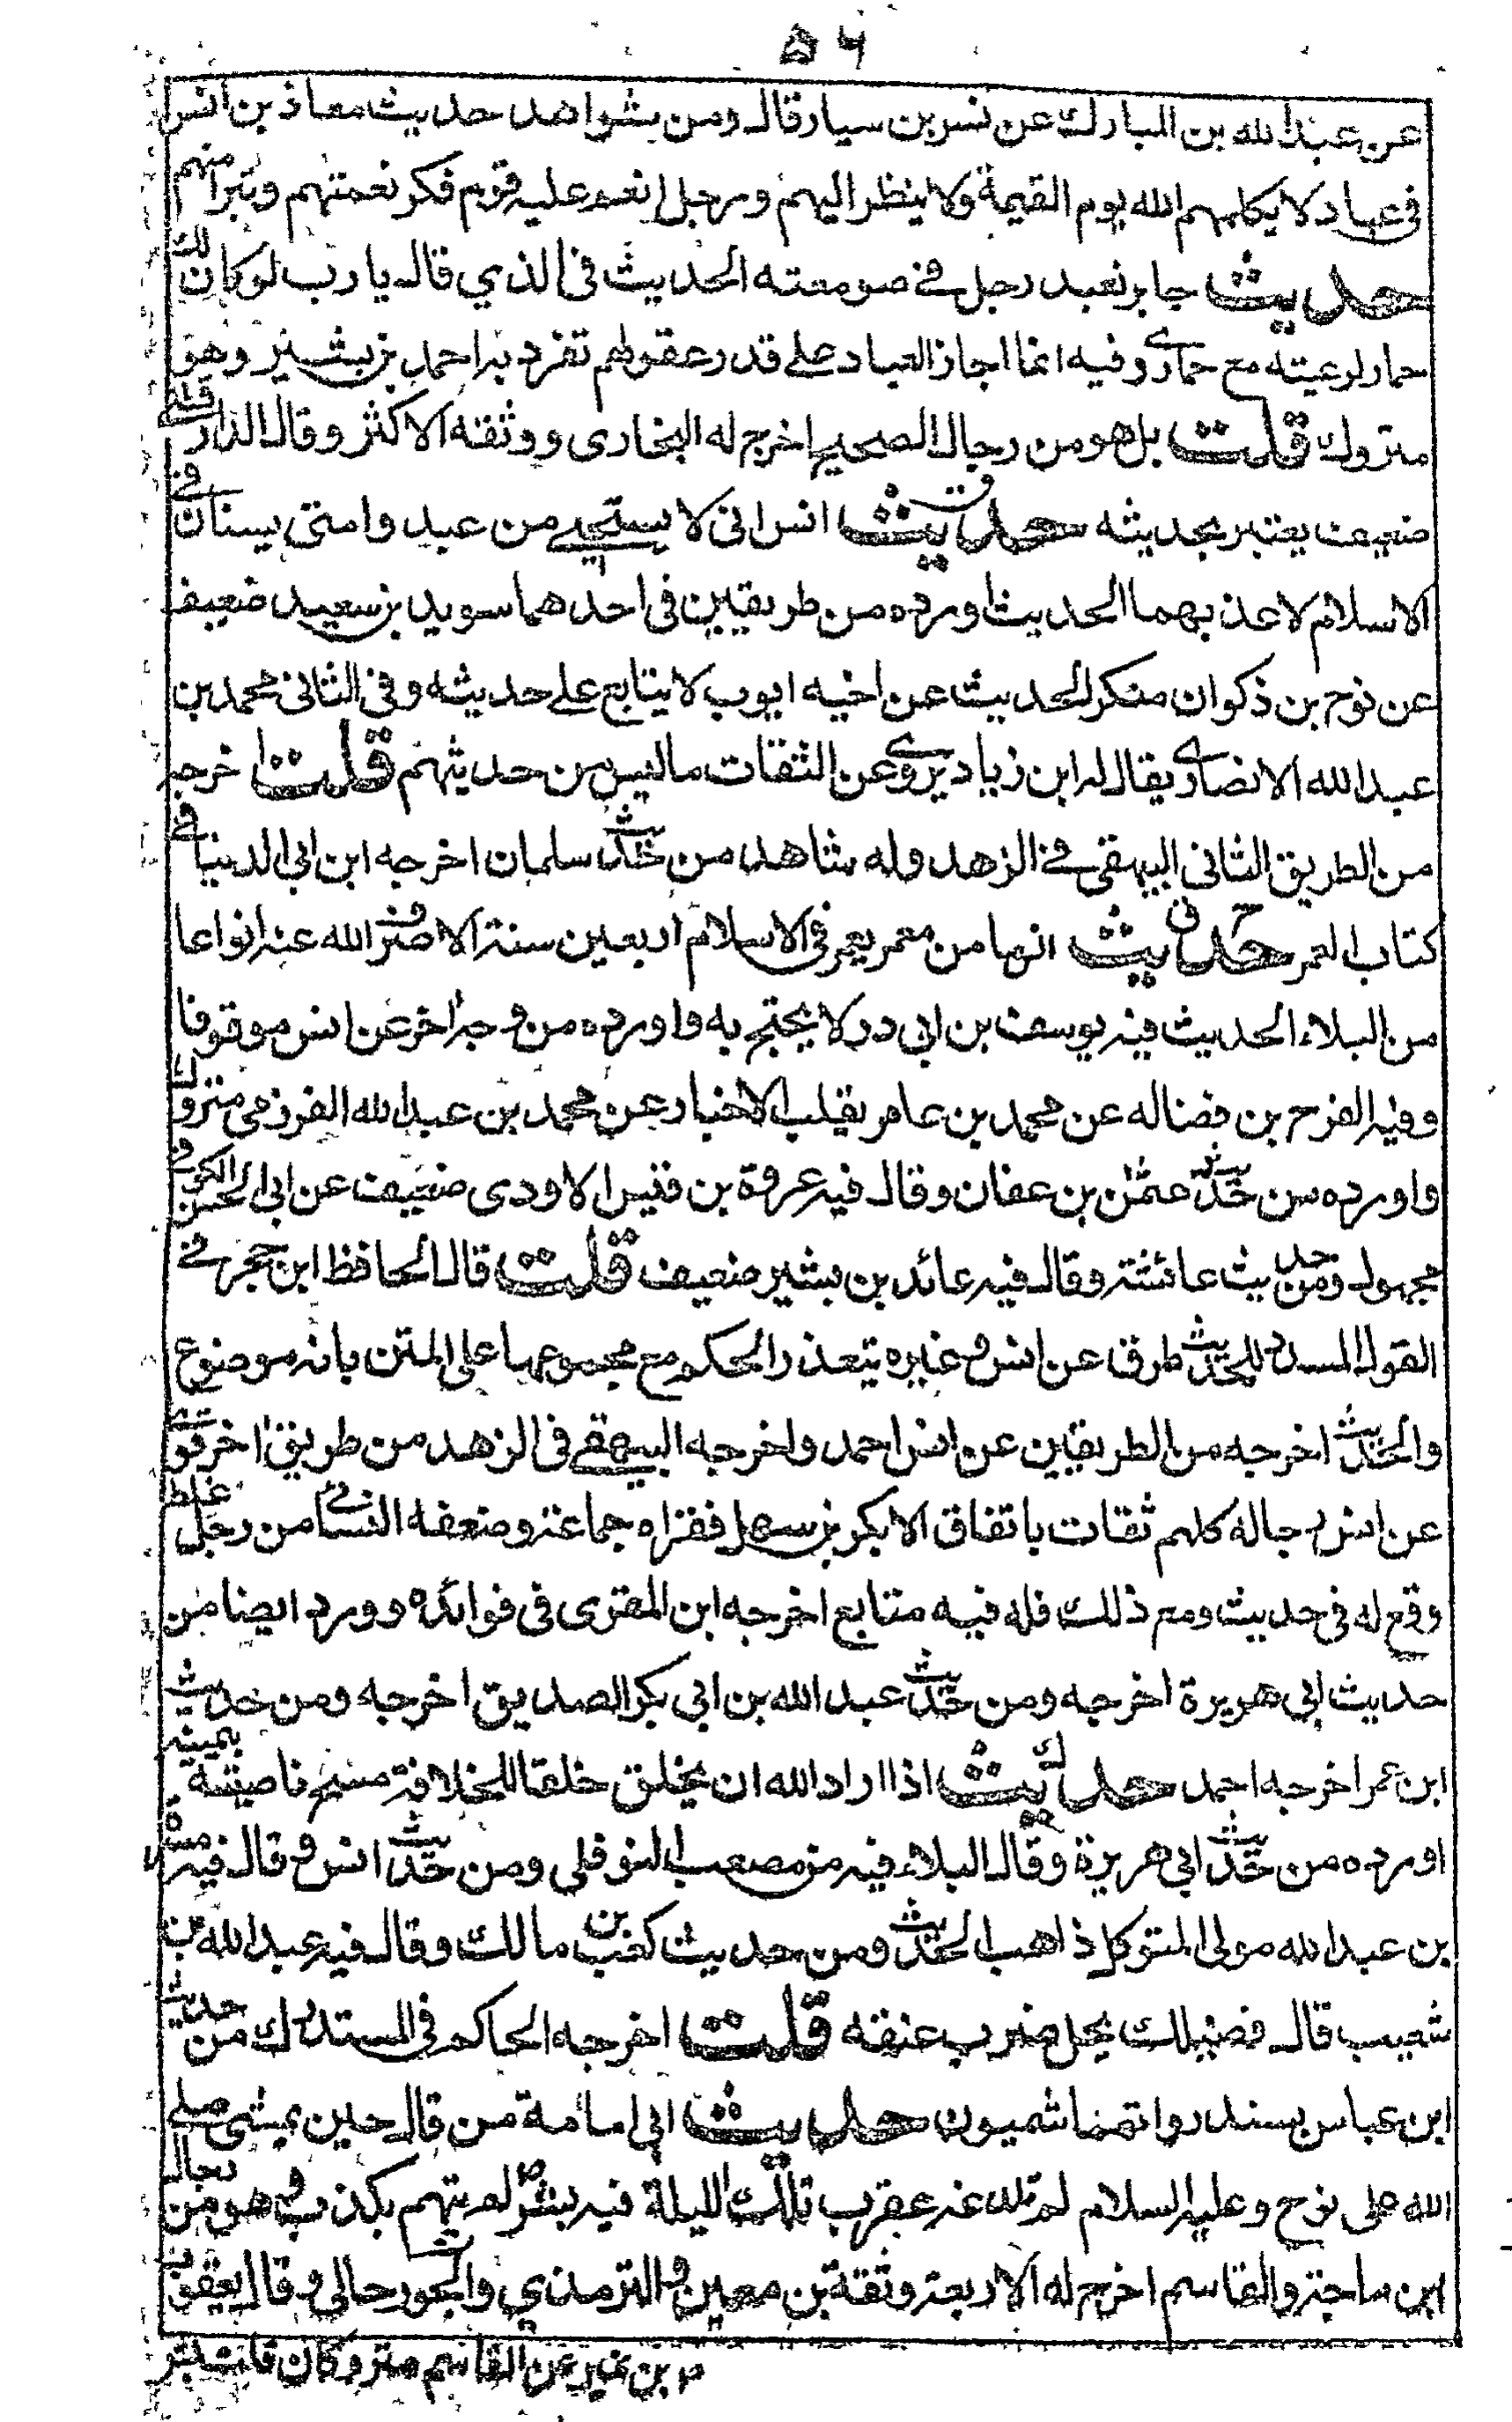 ٥٦
عن عبد الله بن المبارك عن نسر بن سيار قال ومن شواهد حديث معاذ بن انس
فى عباد لا يكلمهم الله يوم القيمة ولا ينظر اليهم ورجل انعم عليه قوم فكر نعمتهم وتبرا منهم
حديث جابر تعبد رجل فے صومعته الحديث فى الذي قال يا رب لو كان لك
حمار لرعيته مع حمارى وفيه انما اجاز العباد على قدر عقولهم تفرد به احمد بن بشير وهو
متروك قلت بل هو من رجال الصحيح اخرج له البخارى ووثقه الاكثر وقال الدارقطنے
ضعيف يعتبر بحديثه حديث انس انى لا ستحيے من عبد وامتى يسنان فے
الاسلام لاعذبهما الحديث اورده من طريقين فى احدهما سويد بن سعيد ضعيف
عن نوح بن ذكوان منكر الحديث عن اخيه ايوب لا يتابع على حديثه وفى الثانى محمد بن
عبد الله الانصارى يقال له ابن زياد يروى عن الثقات ما ليس من حديثهم قلت اخرجه
من الطريق الثانى البيهقى فے الزهد وله شاهد من حديث سلمان اخرجه ابن ابى الدنيا فے
كتاب العمر حديث انه ما من معمر يعمر فى الاسلام اربعين سنة الا صرف الله عنه انواعا
من البلاء الحديث فيه يوسف بن ابى در لا يحتج به واورده من وجه اخر عن انس موقوفا
وفيه الفرح بن فضاله عن محمد بن عامر يقلب الاخبار عن محمد بن عبد الله الفرزمى متروك
واورده من حديث عثمن بن عفان وقال فيه عروة بن قيس الاودى ضعيف عن ابى الحسن الكوفے
مجهول ومن حديث عائشة وقال فيه عائد بن بشير ضعيف قلت قال الحافظ ابن حجر فے
القول المسدد للحديث طرق عن انس وغيره يتعذر الحكم مع مجموعها على المتن بانه موضوع
والحديث اخرجه من الطريقين عن انس احمد واخرجه البيهقے فى الزهد من طريق اخر قوية
عن انس رجاله كلهم ثقات باتفاق الا بكر بن سهل فقراه جماعة وضعفه النسائے من رجل غلط
وقع له فى حديث ومع ذلك فله فيه متابع اخرجه ابن المقرى فى فوائده وورد ايضا من
حديث ابى هريرة اخرجه ومن حديث عبد الله بن ابى بكر الصديق اخرجه ومن حديث
ابن عمر اخرجه احمد حديث اذا اراد الله ان يخلق خلقا للخلافة مسح ناصيته بيمينه
اورده من حديث ابى هريرة وقال البلاء فيه من مصعب النوفلى ومن حديث انس وقال فيه مسرة
بن عبد الله مولى المتوكل ذاهب الحديث ومن حديث كعب بن مالك وقال فيه عبد الله بن
شعيب قال فضيلك يحل ضرب عنقه قلت اخرجه الحاكم فى المستدرك من حديث
ابن عباس بسند رواته هاشميون حديث ابى امامة من قال حين يمشى صلے
الله على نوح وعليه السلام لم تلدغه عقرب تلك الليلة فيه بشر لم يتهم بكذب وهو من رجال
ابن ماجة والقاسم اخرج له الاربعة وثقة بن معين والترمذي والجورجالى وقال يعقوب
بن نمير عن القاسم متروكان قلت بشر